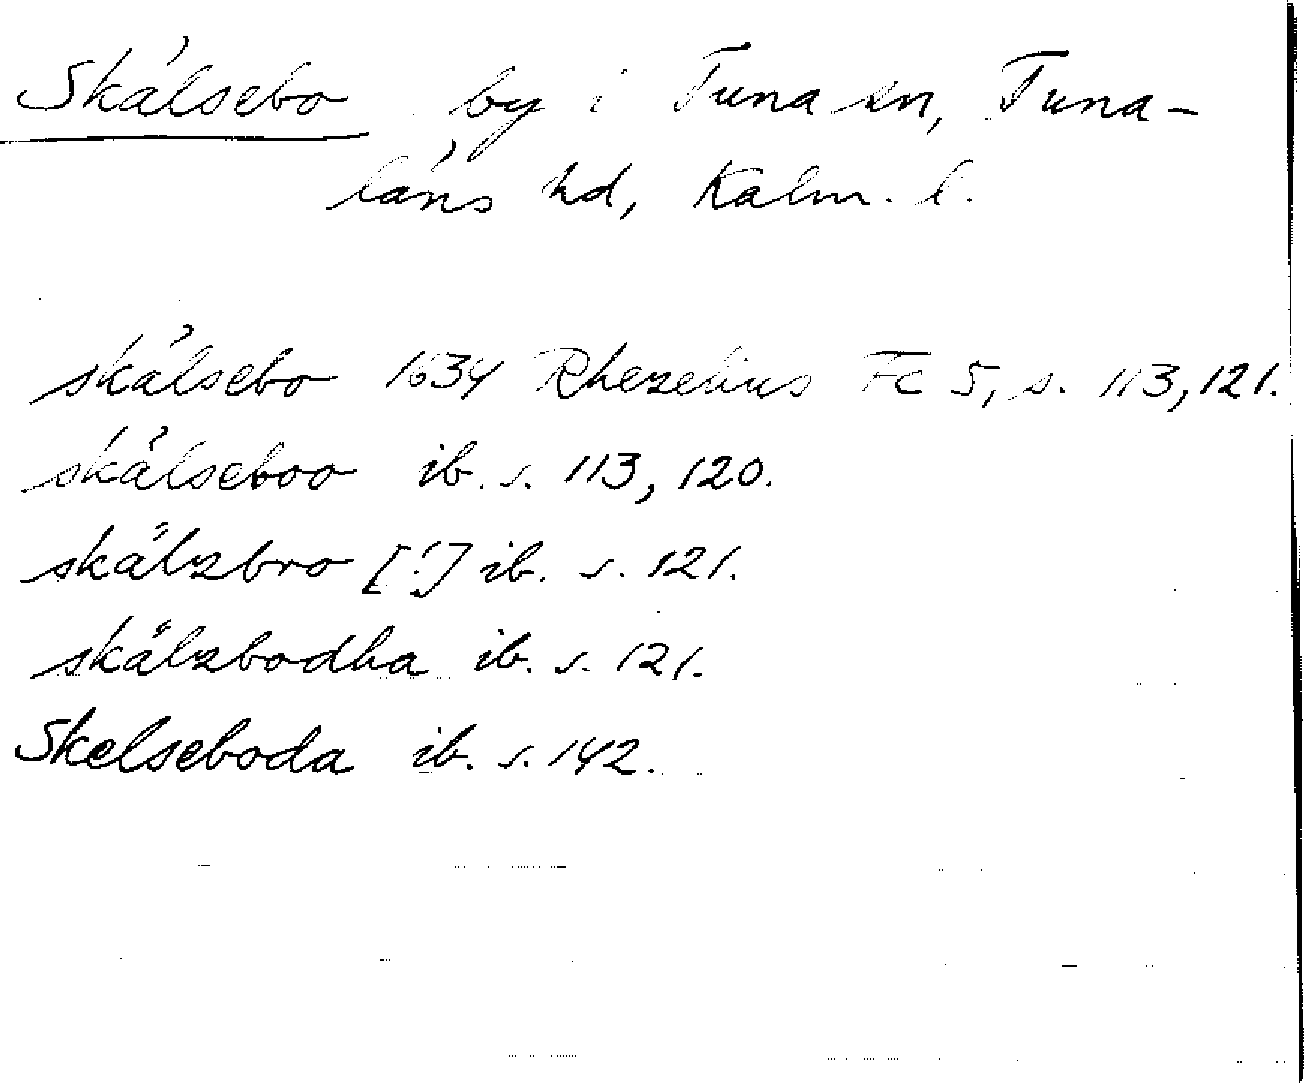 Skälsebo by i Tuna sn, Tuna-
läns hd, Kalm. l.
skälsebo 1634 Rhezelius Fc 5, s. 113, 121.
skälseboo ib. s. 113, 120.
skälzbro [!] ib. s. 121.
skälzbodha ib. s. 121.
Skelseboda ib. s. 142.